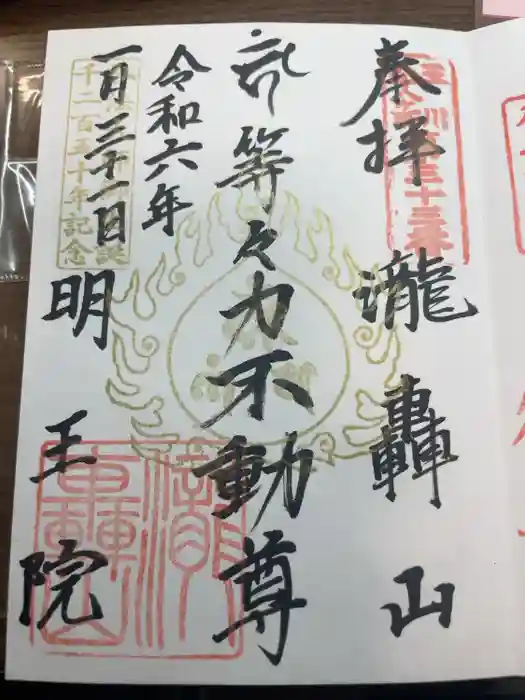 奉拝
瀧轟山
等々力不動尊
令和六年
一月三十一日
明王院
千二百五十年記念